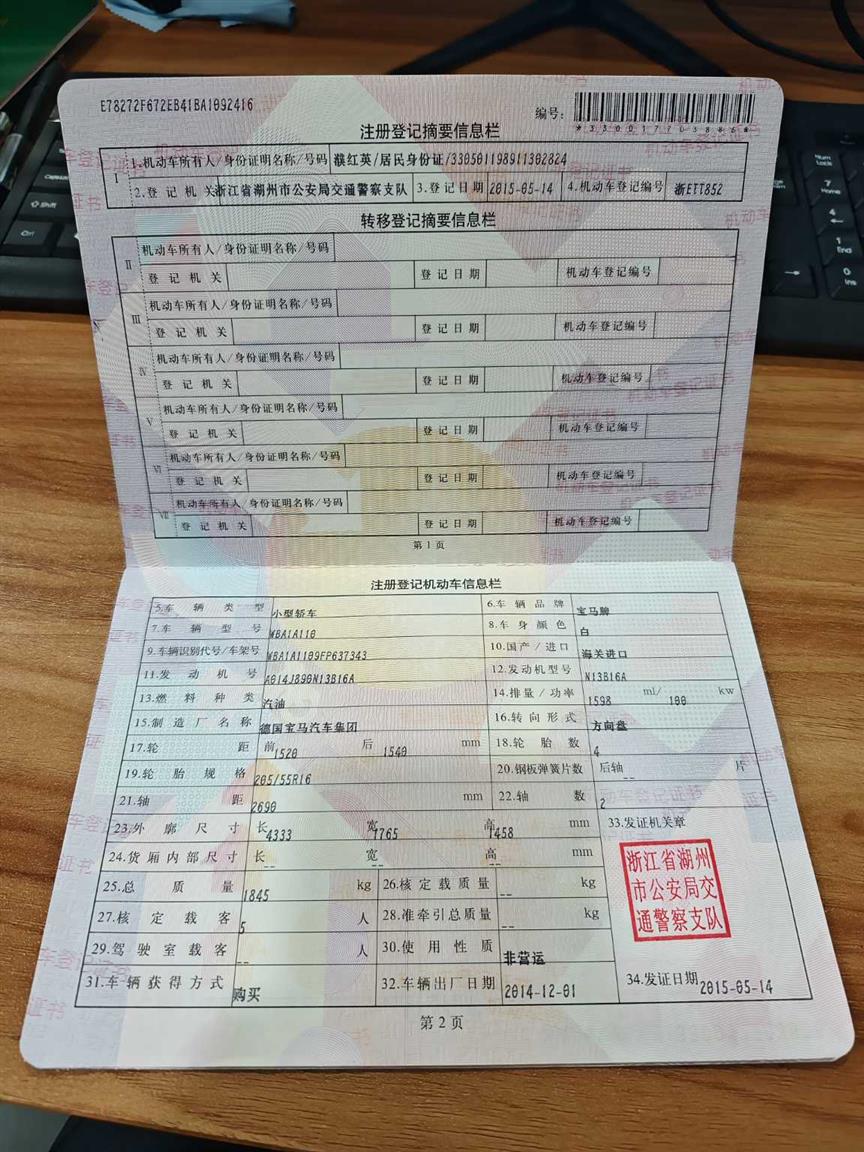 E78272F672EB41BA1092416
编号:
*330017703886*
注册登记摘要信息栏
I 1.机动车所有人/身份证明名称/号码 濮红英/居民身份证/330501198911302824
2.登记机关 浙江省湖州市公安局交通警察支队 3.登记日期 2015-05-14 4.机动车登记编号 浙ETT852
转移登记摘要信息栏
II 机动车所有人/身份证明名称/号码
登记机关 登记日期 机动车登记编号
III 机动车所有人/身份证明名称/号码
登记机关 登记日期 机动车登记编号
IV 机动车所有人/身份证明名称/号码
登记机关 登记日期 机动车登记编号
V 机动车所有人/身份证明名称/号码
登记机关 登记日期 机动车登记编号
VI 机动车所有人/身份证明名称/号码
登记机关 登记日期 机动车登记编号
VII 机动车所有人/身份证明名称/号码
登记机关 登记日期 机动车登记编号
第1页
注册登记机动车信息栏
5.车辆类型 小型轿车 6.车辆品牌 宝马牌
7.车辆型号 WBA1A110 8.车身颜色 白
9.车辆识别代号/车架号 WBA1A1109FP637343 10.国产/进口 海关进口
11.发动机号 A014J890N13B16A 12.发动机型号 N13B16A
13.燃料种类 汽油 14.排量/功率 1598 ml/ 100 kw
15.制造厂名称 德国宝马汽车集团 16.转向形式 方向盘
17.轮距 前 1520 后 1540 mm 18.轮胎数 4
19.轮胎规格 205/55R16 20.钢板弹簧片数 后轴 -- 片
21.轴距 2690 mm 22.轴数 2
23.外廓尺寸 长 4333 宽 1765 高 1458 mm 33.发证机关章
24.货厢内部尺寸 长 -- 宽 -- 高 -- mm
浙江省湖州
市公安局交
通警察支队
25.总质量 1845 kg 26.核定载质量 -- kg
27.核定载客 5 人 28.准牵引总质量 -- kg
29.驾驶室载客 -- 人 30.使用性质 非营运
31.车辆获得方式 购买 32.车辆出厂日期 2014-12-01 34.发证日期 2015-05-14
第2页